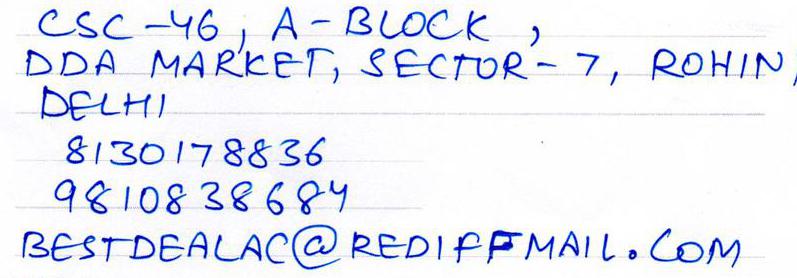 CSC-46, A-BLOCK,
DDA MARKET, SECTOR-7, ROHIN
DELHI
8130178836
9810838684
BESTDEALAC@REDIFFMAIL.COM